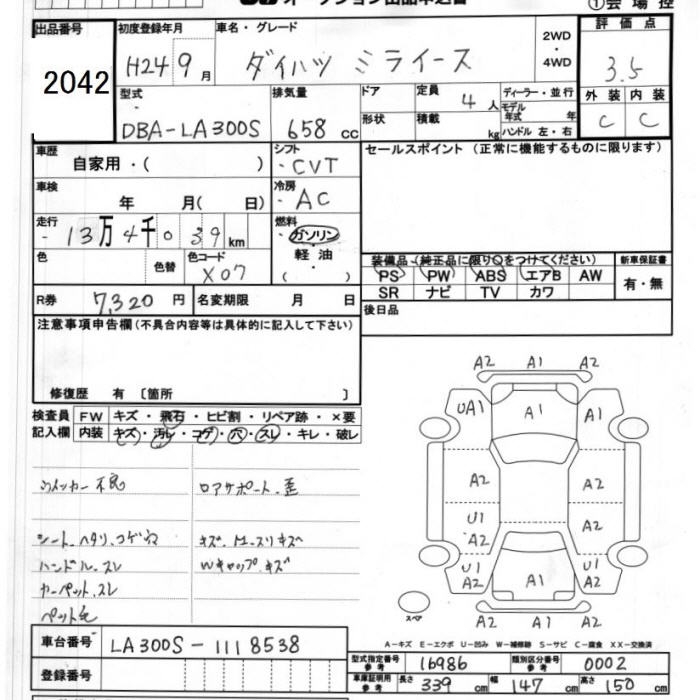 ①会場控
出品番号 初度登録年月 車名・グレード 評価点
2042 H24 9月 ダイハツ ミライース 2WD・4WD 3.5
型式 排気量 ドア 定員 ディーラー・並行 外装 内装
DBA-LA300S 658cc 形状 4人 モデル年式 年 C C
積載 kg ハンドル 左・右
車歴 シフト セールスポイント (正常に機能するものに限ります)
自家用・( ) CVT
車検 冷房
年 月( 日) AC
走行 燃料
13万4千039km ガソリン
色 色替 色コード 軽油・
X07 ( )
装備品(純正品に限り○をつけてください) 新車保証書
PS PW ABS エアB AW 有・無
SR ナビ TV カワ
R券 7,320円 名変期限 月 日
後日品
注意事項申告欄(不具合内容等は具体的に記入して下さい)
修復歴 有〔箇所 〕
検査員 FW キズ・飛石・ヒビ割・リペア跡・×要
記入欄 内装 キズ・汚レ・コゲ・穴・スレ・キレ・破レ
A2 A1 A2
UA1 A1 A1
A2 A2
U1 A2 A2
U1 A2 A1 U1 A2
A2 A1 A2
スペア
ウィンカー不良 ロアサポート歪
シート ヘタリ、コゲ穴
ハンドル.スレ Wキャップ.キズ
カーペット.スレ
ペット毛
A-キズ E-エクボ U-凹み W-補修跡 S-サビ C-腐食 XX-交換済
車台番号 LA300S-1118538
登録番号
型式指定番号 参考 16986 類別区分番号 参考 0002
車庫証明用 参考 長さ 339cm 幅 147cm 高さ 150cm